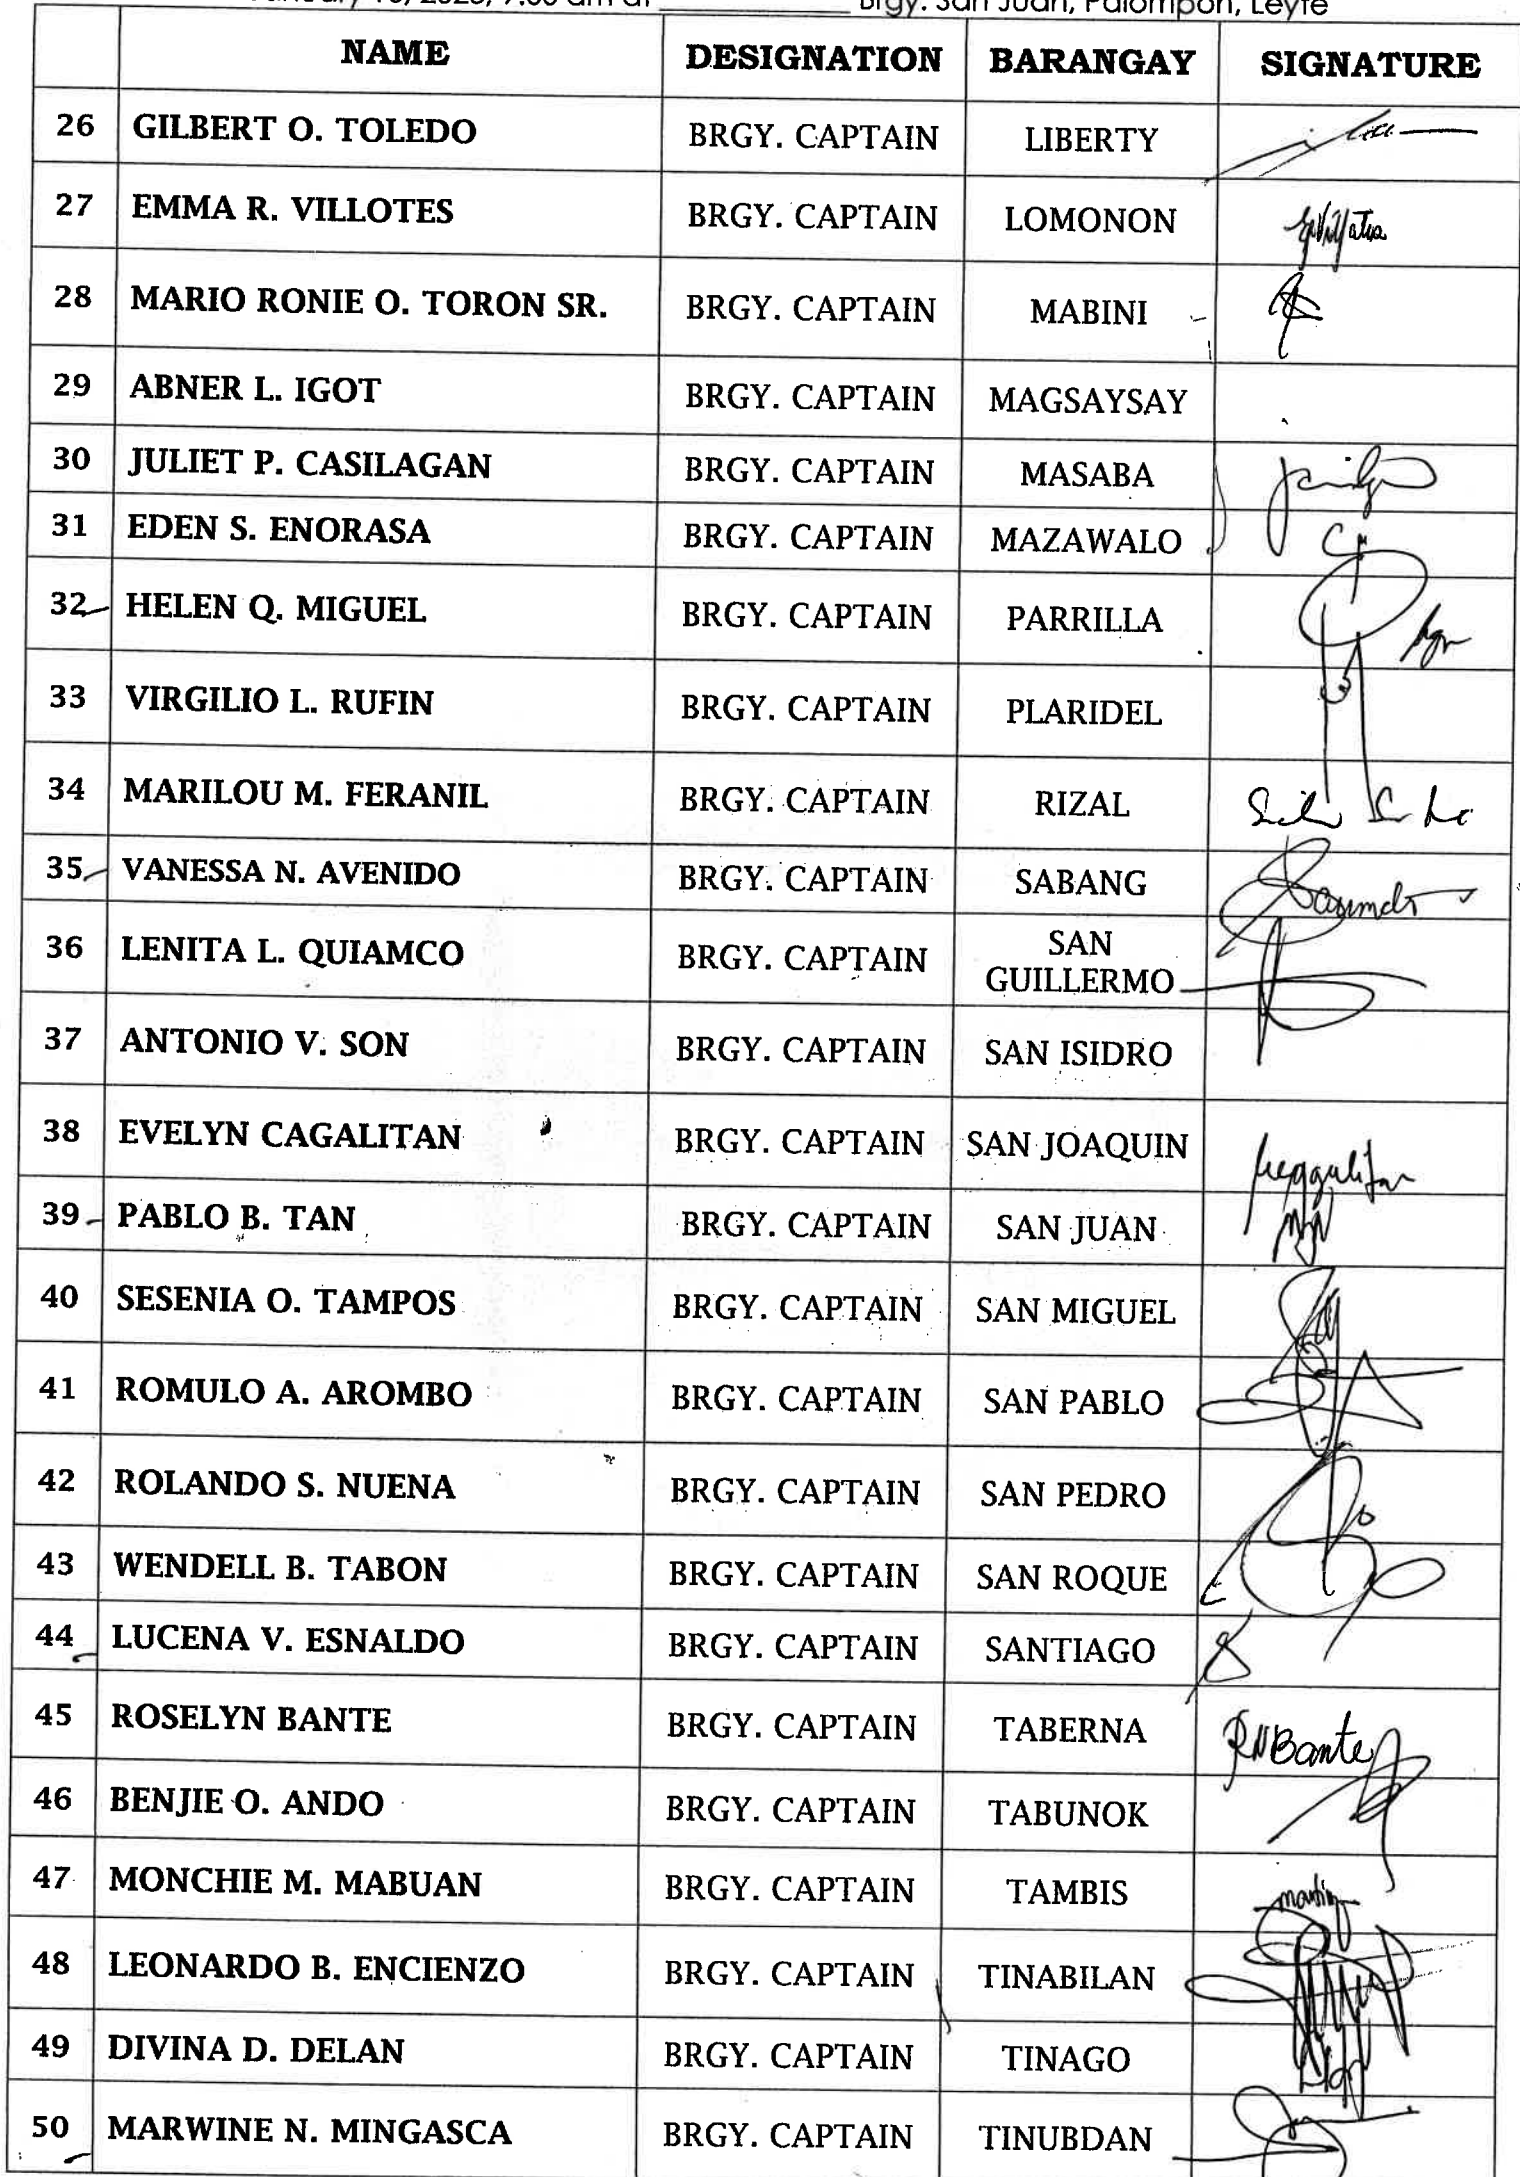 Brgy. San Juan, Palompon, Leyte
NAME DESIGNATION BARANGAY SIGNATURE
26 GILBERT O. TOLEDO BRGY. CAPTAIN LIBERTY
27 EMMA R. VILLOTES BRGY. CAPTAIN LOMONON
28 MARIO RONIE O. TORON SR. BRGY. CAPTAIN MABINI
29 ABNER L. IGOT BRGY. CAPTAIN MAGSAYSAY
30 JULIET P. CASILAGAN BRGY. CAPTAIN MASABA
31 EDEN S. ENORASA BRGY. CAPTAIN MAZAWALO
32 HELEN Q. MIGUEL BRGY. CAPTAIN PARRILLA
33 VIRGILIO L. RUFIN BRGY. CAPTAIN PLARIDEL
34 MARILOU M. FERANIL BRGY. CAPTAIN RIZAL
35 VANESSA N. AVENIDO BRGY. CAPTAIN SABANG
36 LENITA L. QUIAMCO BRGY. CAPTAIN SAN
GUILLERMO
37 ANTONIO V. SON BRGY. CAPTAIN SAN ISIDRO
38 EVELYN CAGALITAN BRGY. CAPTAIN SAN JOAQUIN
39 PABLO B. TAN BRGY. CAPTAIN SAN JUAN
40 SESENIA O. TAMPOS BRGY. CAPTAIN SAN MIGUEL
41 ROMULO A. AROMBO BRGY. CAPTAIN SAN PABLO
42 ROLANDO S. NUENA BRGY. CAPTAIN SAN PEDRO
43 WENDELL B. TABON BRGY. CAPTAIN SAN ROQUE
44 LUCENA V. ESNALDO BRGY. CAPTAIN SANTIAGO
45 ROSELYN BANTE BRGY. CAPTAIN TABERNA RNBante
46 BENJIE O. ANDO BRGY. CAPTAIN TABUNOK
47 MONCHIE M. MABUAN BRGY. CAPTAIN TAMBIS
48 LEONARDO B. ENCIENZO BRGY. CAPTAIN TINABILAN
49 DIVINA D. DELAN BRGY. CAPTAIN TINAGO
50 MARWINE N. MINGASCA BRGY. CAPTAIN TINUBDAN